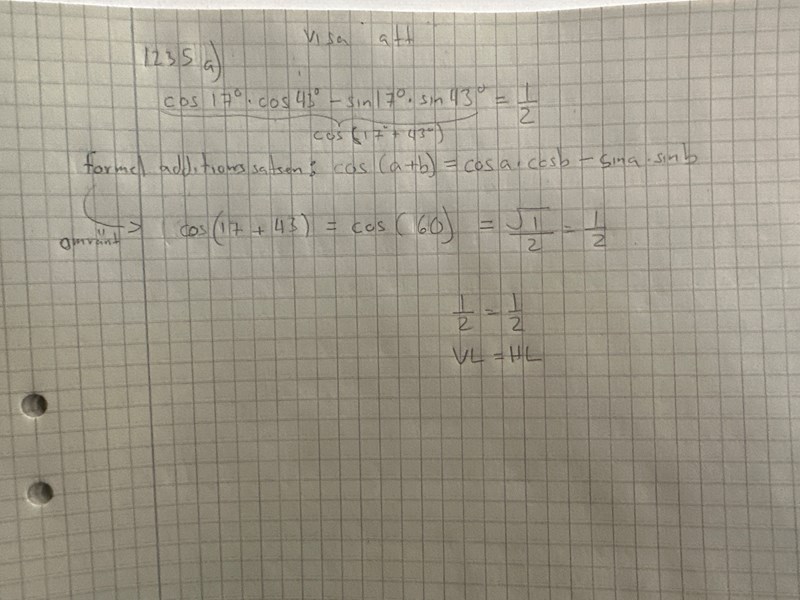 Visa att
1235 a)
cos 17° · cos 43° - sin 17° · sin 43° = 1/2
cos(17° + 43°)
formel additionssatsen: cos(a+b) = cosa · cosb - sina · sinb
omvänt > cos(17 + 43) = cos(60) = √1/2 = 1/2
1/2 = 1/2
VL = HL